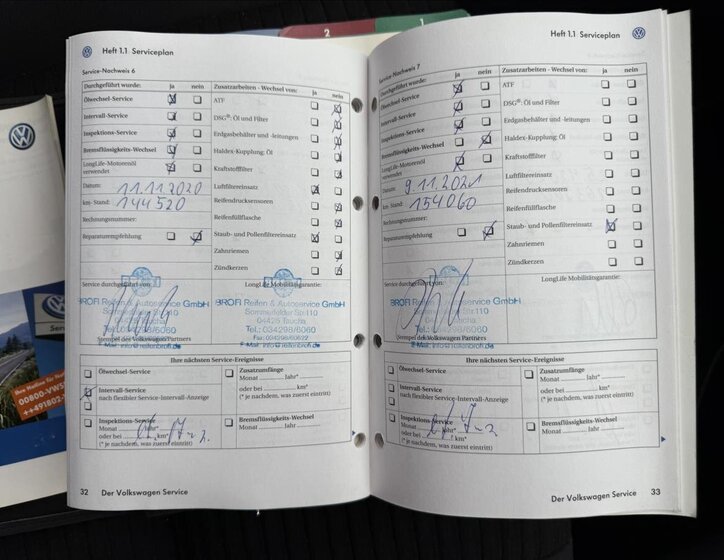 2
1
Heft 1.1 Serviceplan
Service-Nachweis 6
Durchgeführt wurde: ja nein
Ölwechsel-Service
Intervall-Service
Inspektions-Service
Bremsflüssigkeits-Wechsel
LongLife-Motorenöl
verwendet
Datum: 11.11.2020
km-Stand: 144520
Rechnungsnummer:
Reparaturempfehlung
Zusatzarbeiten - Wechsel von: ja nein
ATF
DSG®: Öl und Filter
Erdgasbehälter und -leitungen
Haldex-Kupplung: Öl
Kraftstoffilter
Luftfiltereinsatz
Reifendrucksensoren
Reifenfüllflasche
Staub- und Pollenfiltereinsatz
Zahnriemen
Zündkerzen
Service durchgeführt von:
LongLife Mobilitätsgarantie:
BROFI Reifen & Autoservice GmbH
Sommerfelder Str.110
04425 Taucha
Tel.: 034298/6060
Stempel des Volkswagen Partners
BROFI Reifen & Autoservice GmbH
Sommerfelder Str.110
04425 Taucha
Tel.: 034298/6060
Ihre nächsten Service-Ereignisse
Ölwechsel-Service
Intervall-Service
nach flexibler Service-Intervall-Anzeige
Inspektions-Service
Monat Jahr*
oder bei km*
(* je nachdem, was zuerst eintritt)
Zusatzumfänge
Monat Jahr*
oder bei km*
(* je nachdem, was zuerst eintritt)
Bremsflüssigkeits-Wechsel
Monat Jahr
32 Der Volkswagen Service
Heft 1.1 Serviceplan
Service-Nachweis 7
Durchgeführt wurde: ja nein
Ölwechsel-Service
Intervall-Service
Inspektions-Service
Bremsflüssigkeits-Wechsel
LongLife-Motorenöl
verwendet
Datum: 9.11.2021
km-Stand: 154060
Rechnungsnummer:
Reparaturempfehlung
Zusatzarbeiten - Wechsel von: ja nein
ATF
DSG®: Öl und Filter
Erdgasbehälter und -leitungen
Haldex-Kupplung: Öl
Kraftstoffilter
Luftfiltereinsatz
Reifendrucksensoren
Reifenfüllflasche
Staub- und Pollenfiltereinsatz
Zahnriemen
Zündkerzen
Service durchgeführt von:
LongLife Mobilitätsgarantie:
BROFI Reifen & Autoservice GmbH
Sommerfelder Str.110
04425 Taucha
Tel.: 034298/6060
Stempel des Volkswagen Partners
Ihre nächsten Service-Ereignisse
Ölwechsel-Service
Intervall-Service
nach flexibler Service-Intervall-Anzeige
Inspektions-Service
Monat Jahr*
oder bei km*
(* je nachdem, was zuerst eintritt)
Zusatzumfänge
Monat Jahr*
oder bei km*
(* je nachdem, was zuerst eintritt)
Bremsflüssigkeits-Wechsel
Monat Jahr
Der Volkswagen Service 33